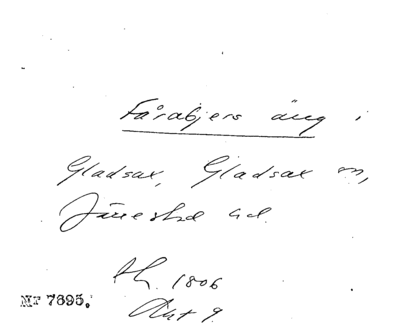 Fårabjers äng i
Gladsax, Gladsax sn,
Järrestad hd.
1806
Akt 9.
Nr 7895.